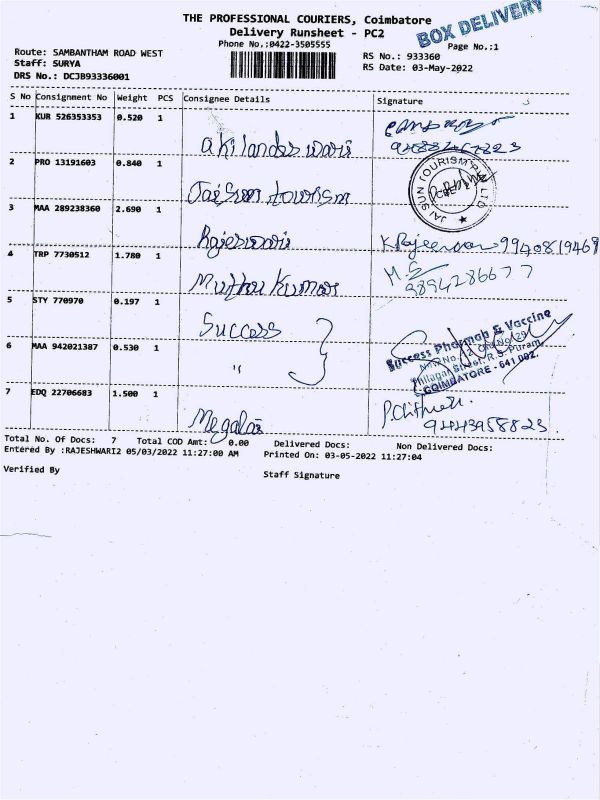 THE PROFESSIONAL COURIERS, Coimbatore
BOX DELIVERY
Delivery Runsheet - PC2
Phone No.:0422-3505555
Page No.:1
Route: SAMBANTHAM ROAD WEST
RS No.: 933360
Staff: SURYA
RS Date: 03-May-2022
DRS No.: DCJB93336001
S No Consignment No Weight PCS Consignee Details Signature
1 KUR 526353353 0.520 1
Akilandeswari
2 PRO 13191603 0.840 1
Jaisun tourism
JAI SUN TOURISM PVT LTD
CBE - 2
3 MAA 289238360 2.690 1
Rajeswari 9940819469
4 TRP 7730512 1.780 1
Muthu Kumar M.S
9894286677
5 STY 770970 0.197 1
Success
Success Pharmab & Vaccine
6 MAA 942021387 0.530 1
"
Thilagar Street, R.S. Puram,
COIMBATORE - 641 002.
7 EDQ 22706683 1.500 1
Megala
9443958823
Total No. Of Docs: 7 Total COD Amt: 0.00 Delivered Docs: Non Delivered Docs:
Entered By :RAJESHWARI2 05/03/2022 11:27:00 AM Printed On: 03-05-2022 11:27:04
Verified By Staff Signature